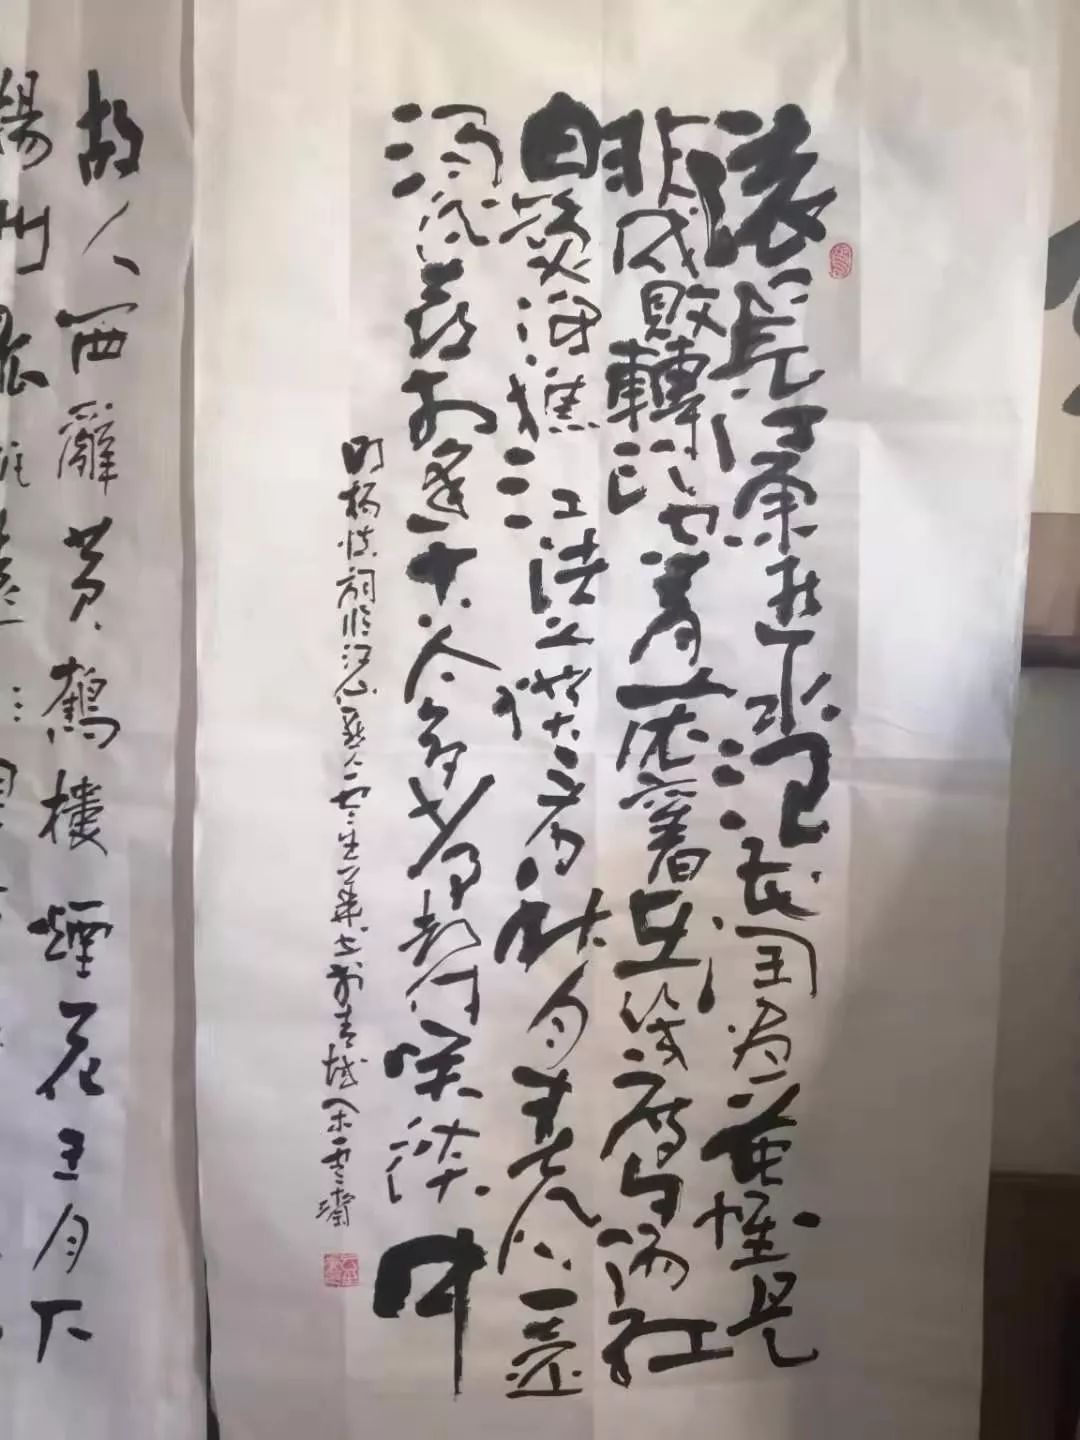 滚〻長江東逝水浪花淘盡英雄是
非成敗轉頭空青山依舊在幾度夕陽紅
白髮漁樵江渚上慣看秋月春風一壺
濁酒喜相逢古今多少事都付笑談中
明楊慎詞臨江仙書於青城
故人西辭黄鶴樓煙花三月下
揚州孤